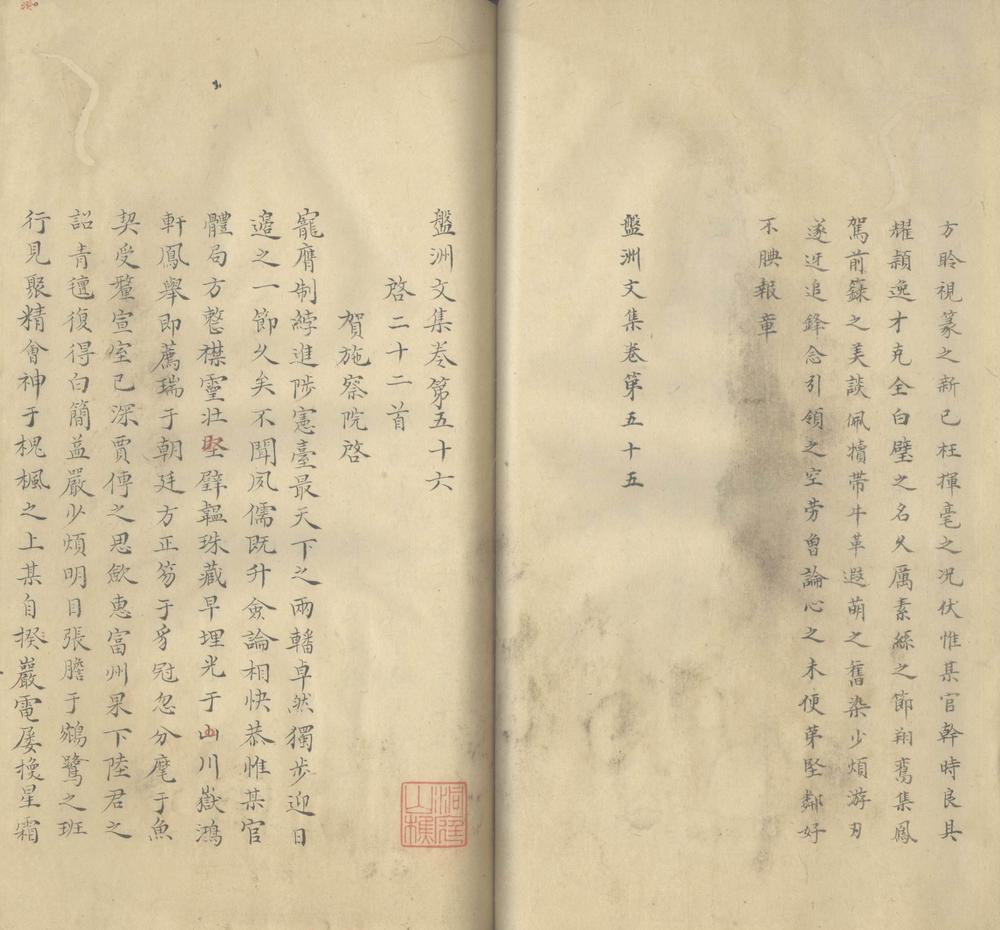 方聆視篆之新已枉揮毫之况伏惟某官幹時良具
耀穎逸才克全白璧之名久厲素絲之節翔鸞集鳳
駕前籙之美談佩犢帶牛革遐萌之舊染少煩游刃
遂迓追鋒念引領之空勞曾論心之未便苐堅鄰好
不腆報章
盤洲文集卷第五十五
盤洲文集卷第五十六
啓二十二首
賀施察院啓
寵膺制綍進陟憲臺最天下之兩轓卓然獨步迎日
邉之一節久矣不聞夙儒既升僉論相快恭惟某官
體局方整襟靈壯堅璧韞珠藏早埋光于山川嶽鴻
軒鳳舉即薦瑞于朝廷方正笏于豸冠忽分麾于魚
契受釐宣室已深賈傅之思歛惠富州果下陸君之
詔青氊復得白簡益嚴少煩明目張膽于鵷鷺之班
行見聚精會神于槐楓之上某自揆巖電屡換星霜